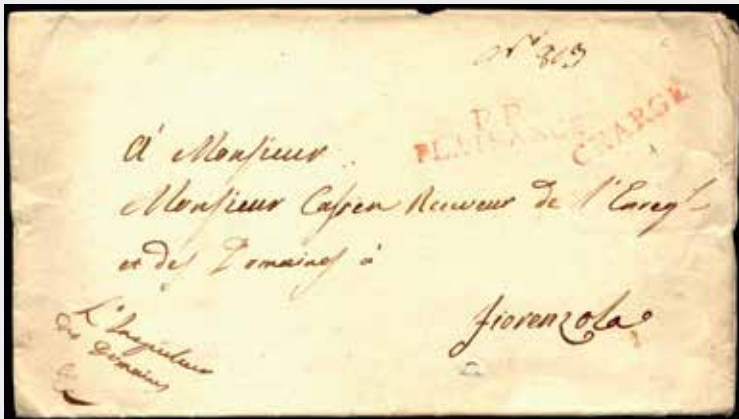 N° 803
P.P.
PLAISANCE
CHARGÉ
A Monsieur
Monsieur Receveur de l'Enregt
et des Domaines à
fiorenzola
L'Inspecteur
des Domaines